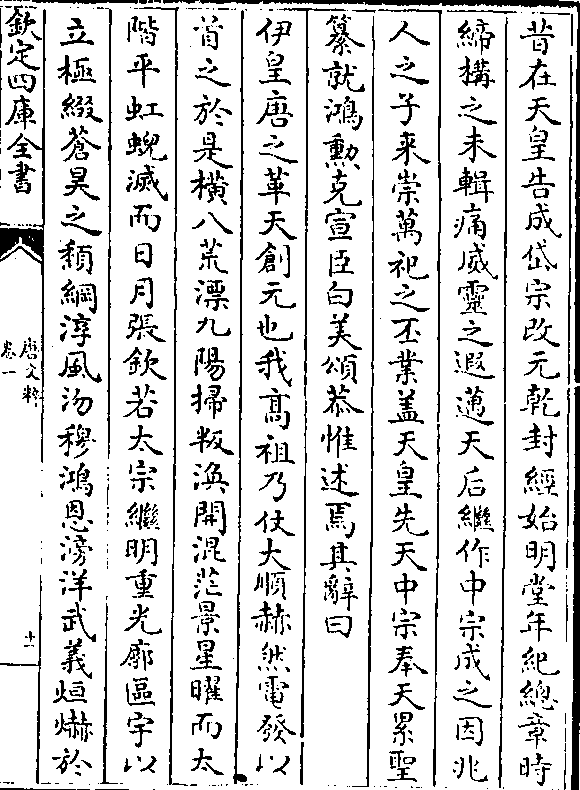 昔在天皇告成岱宗改元乾封經始明堂年紀總章時
締構之未輯痛威靈之遐邁天后繼作中宗成之因兆
人之子來崇萬祀之丕業葢天皇先天中宗奉天累聖
纂就鴻勲克宣臣白美頌恭惟述焉其辭曰
伊皇唐之革天創元也我髙祖乃仗大順赫然雷發以
首之於是橫八荒漂九陽掃叛渙開混茫景星曜而太
階平虹蜺滅而日月張欽若太宗繼明重光廓區宇以
立極綴蒼昊之頽綱淳風沕穆鴻恩滂洋武義烜爀於
欽定四庫全書
唐文粹
卷一
十一